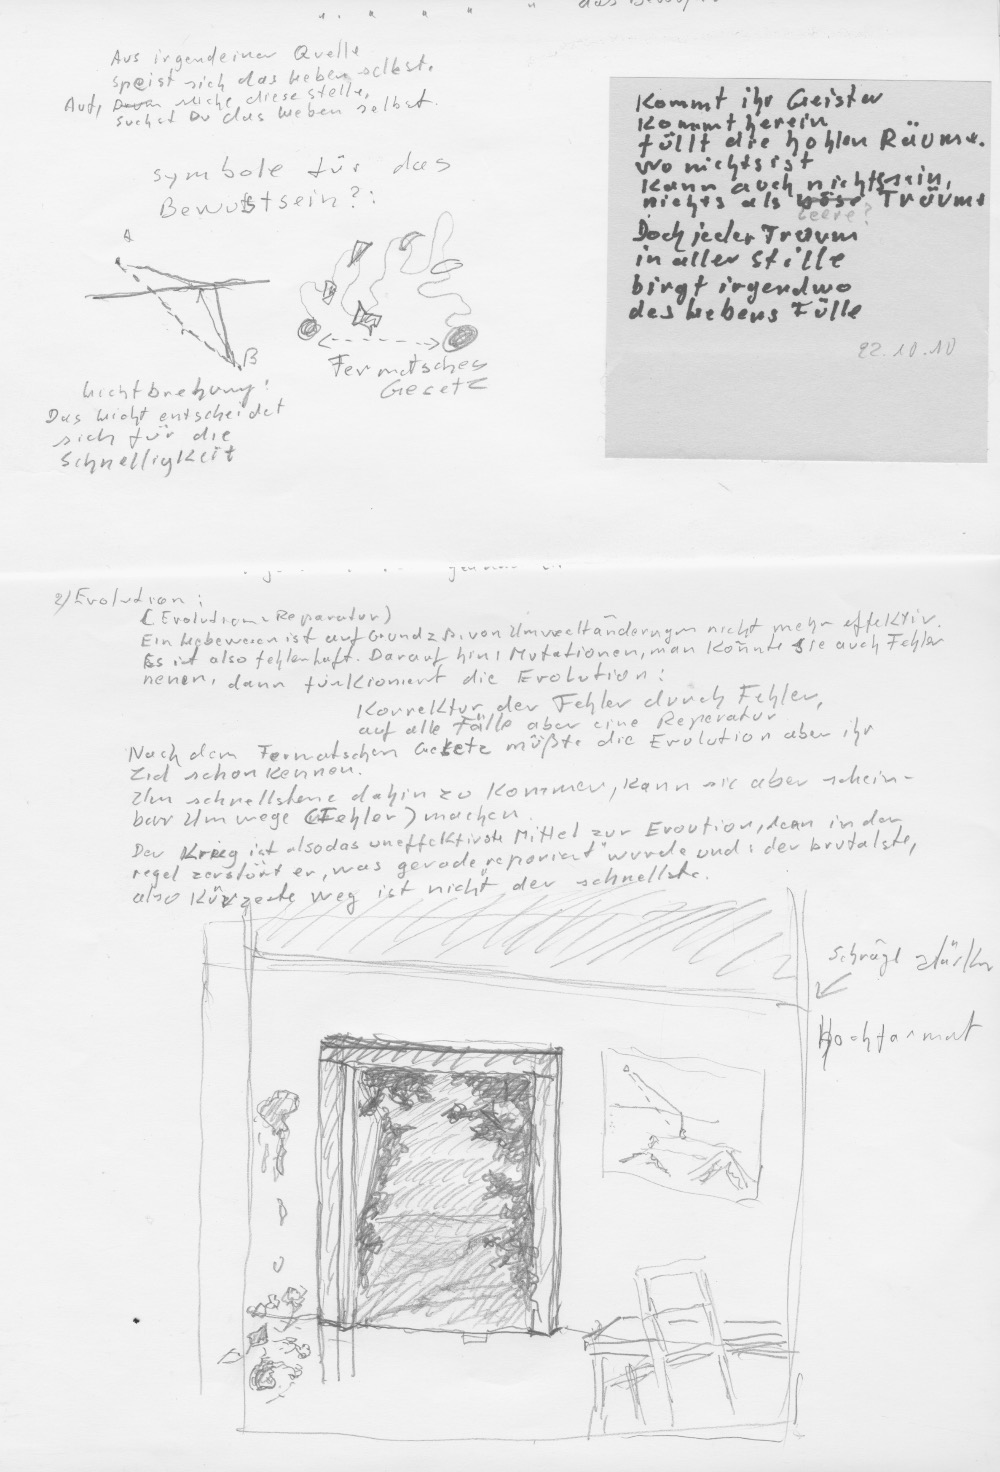 Aus irgendeiner Quelle
speist sich das Leben selbst.
Auf, suche diese Stelle,
suchst Du das Leben selbst.
Symbole für das
Bewußtsein?:
A
B
Lichtbrechung!
Das Licht entscheidet
sich für die
Schnelligkeit
Fermatsches
Gesetz
Kommt ihr Geister
Kommt herein
füllt die hohlen Räume.
Wo nichts ist
kann auch nichts sein,
nichts als böse Träume
leere?
Doch jeder Traum
in aller Stille
birgt irgendwo
des Lebens Fülle
22.10.10
2) Evolution:
(Evolution = Reparatur)
Ein Lebewesen ist auf Grund z.B. von Umweltänderungen nicht mehr effektiv.
Es ist also fehlerhaft. Darauf hin: Mutationen, man könnte sie auch Fehler
nennen, dann funktioniert die Evolution:
Korrektur der Fehler durch Fehler,
auf alle Fälle aber eine Reperatur
Nach dem Fermatschen Gesetz müßte die Evolution aber ihr
Ziel schon kennen.
Um schnellstens dahin zu kommen, kann sie aber schein-
bar Umwege (Fehler) machen.
Der Krieg ist also das uneffektivste Mittel zur Evoution, denn in der
regel zerstört er, was gerade "repariert" wurde und: der brutalste,
also kürzeste Weg ist nicht der schnellste.
Schräge stärker
Hochformat